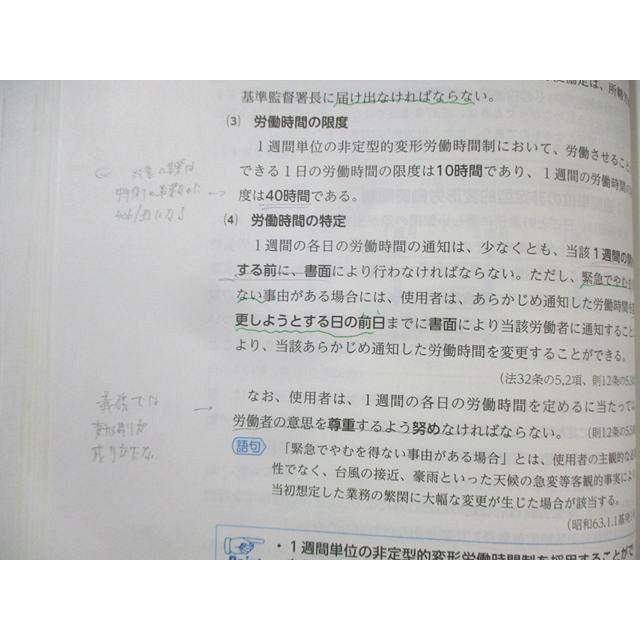 基準監督署長に届け出なければならない。
(3) 労働時間の限度
1週間単位の非定型的変形労働時間制において、労働させること
できる1日の労働時間の限度は10時間であり、1週間の労働時間の
度は40時間である。
(4) 労働時間の特定
1週間の各日の労働時間の通知は、少なくとも、当該1週間の
する前に、書面により行わなければならない。ただし、緊急でやむ
ない事由がある場合には、使用者は、あらかじめ通知した労働時間を
更しようとする日の前日までに書面により当該労働者に通知すること
より、当該あらかじめ通知した労働時間を変更することができる。
(法32条の5,2項、則12条の5,
なお、使用者は、1週間の各日の労働時間を定めるに当たって
労働者の意思を尊重するよう努めなければならない。 (則12条の5,
語句 「緊急でやむを得ない事由がある場合」とは、使用者の主観的な
性でなく、台風の接近、豪雨といった天候の急変等客観的事実により
当初想定した業務の繁閑に大幅な変更が生じた場合が該当する。
(昭和63.1.1基発
・1週間単位の非定型的変形労働時間制を採用することがで